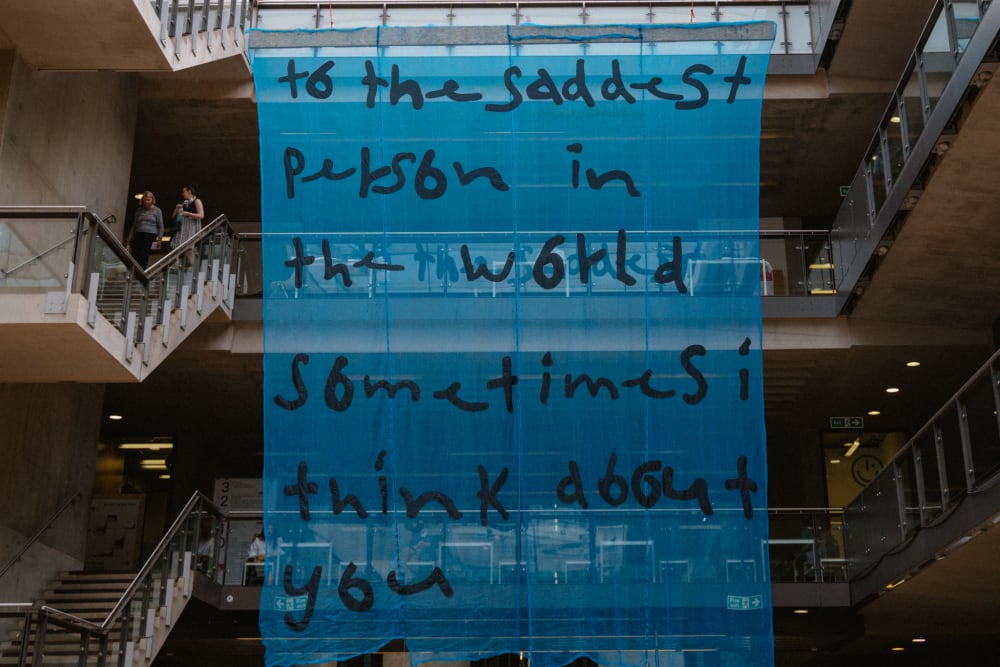 to the saddest
person in
the world
sometimes i
think about
you
3
2